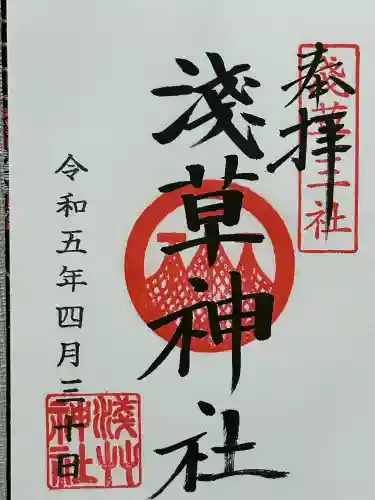 奉拝
淺草三社
淺草神社
令和五年四月三十日
淺草神社